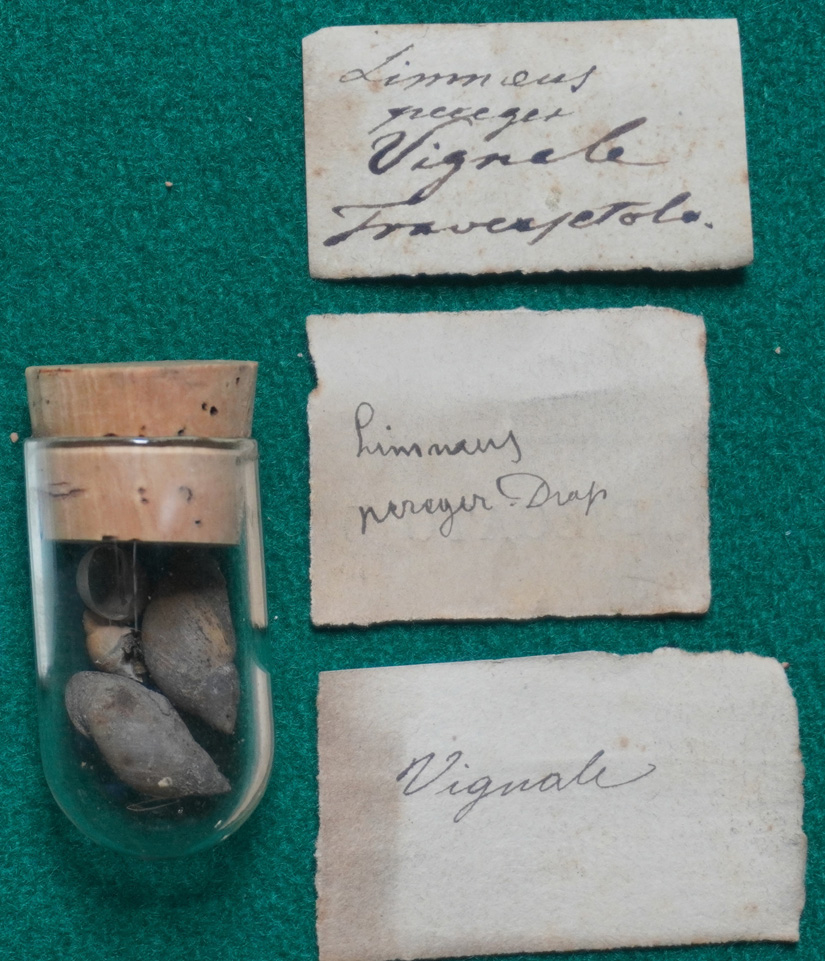 Limnæus
pereger
Vignale
Traversetolo.
Limnæus
pereger. Drap
Vignale